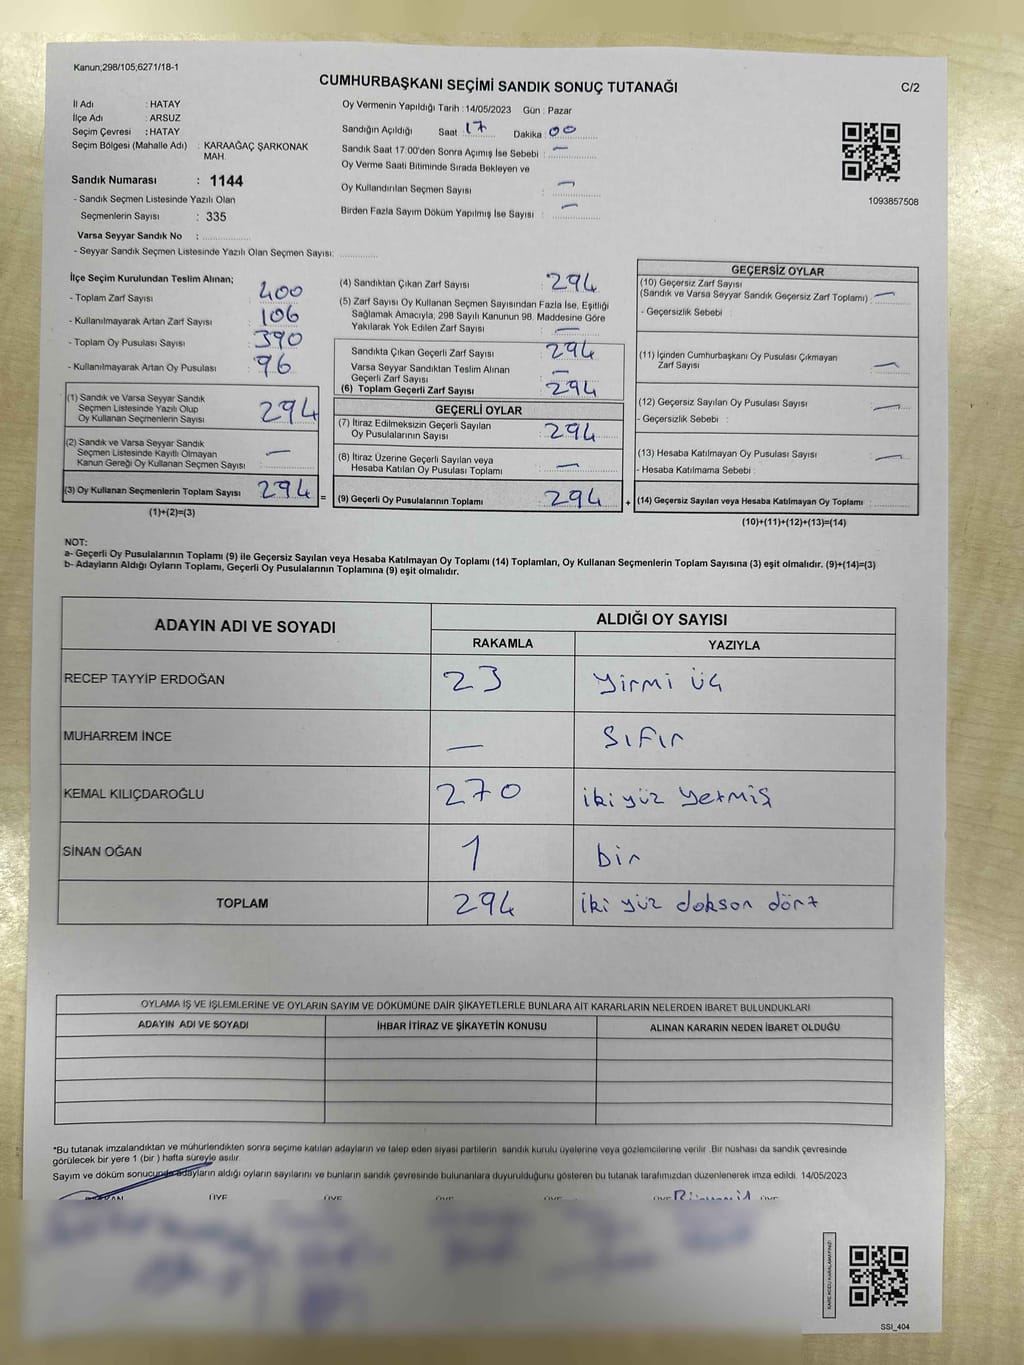 Kanun;298/105;6271/18-1
CUMHURBAŞKANI SEÇİMİ SANDIK SONUÇ TUTANAĞI
C/2
İl Adı : HATAY
İlçe Adı : ARSUZ
Seçim Çevresi : HATAY
Seçim Bölgesi (Mahalle Adı) : KARAAĞAÇ ŞARKONAK
MAH.
Sandık Numarası : 1144
- Sandık Seçmen Listesinde Yazılı Olan
Seçmenlerin Sayısı : 335
Varsa Seyyar Sandık No :
- Seyyar Sandık Seçmen Listesinde Yazılı Olan Seçmen Sayısı:
Oy Vermenin Yapıldığı Tarih : 14/05/2023 Gün : Pazar
Sandığın Açıldığı Saat 17 Dakika : 00
Sandık Saat 17:00'den Sonra Açımış İse Sebebi : —
Oy Verme Saati Bitiminde Sırada Bekleyen ve
Oy Kullandırılan Seçmen Sayısı : —
Birden Fazla Sayım Döküm Yapılmış İse Sayısı : —
1093857508
İlçe Seçim Kurulundan Teslim Alınan;
- Toplam Zarf Sayısı : 400
- Kullanılmayarak Artan Zarf Sayısı : 106
- Toplam Oy Pusulası Sayısı : 390
- Kullanılmayarak Artan Oy Pusulası : 96
(1) Sandık ve Varsa Seyyar Sandık
Seçmen Listesinde Yazılı Olup
Oy Kullanan Seçmenlerin Sayısı : 294
(2) Sandık ve Varsa Seyyar Sandık
Seçmen Listesinde Kayıtlı Olmayan
Kanun Gereği Oy Kullanan Seçmen Sayısı : —
(3) Oy Kullanan Seçmenlerin Toplam Sayısı : 294 =
(1)+(2)=(3)
(4) Sandıktan Çıkan Zarf Sayısı : 294
(5) Zarf Sayısı Oy Kullanan Seçmen Sayısından Fazla İse, Eşitliği
Sağlamak Amacıyla, 298 Sayılı Kanunun 98. Maddesine Göre
Yakılarak Yok Edilen Zarf Sayısı : —
Sandıkta Çıkan Geçerli Zarf Sayısı : 294
Varsa Seyyar Sandıktan Teslim Alınan
Geçerli Zarf Sayısı : —
(6) Toplam Geçerli Zarf Sayısı : 294
GEÇERLİ OYLAR
(7) İtiraz Edilmeksizin Geçerli Sayılan
Oy Pusulalarının Sayısı : 294
(8) İtiraz Üzerine Geçerli Sayılan veya
Hesaba Katılan Oy Pusulası Toplamı : —
(9) Geçerli Oy Pusulalarının Toplamı : 294 +
GEÇERSİZ OYLAR
(10) Geçersiz Zarf Sayısı
(Sandık ve Varsa Seyyar Sandık Geçersiz Zarf Toplamı) : —
- Geçersizlik Sebebi :
(11) İçinden Cumhurbaşkanı Oy Pusulası Çıkmayan
Zarf Sayısı : —
(12) Geçersiz Sayılan Oy Pusulası Sayısı : —
- Geçersizlik Sebebi :
(13) Hesaba Katılmayan Oy Pusulası Sayısı : —
- Hesaba Katılmama Sebebi :
(14) Geçersiz Sayılan veya Hesaba Katılmayan Oy Toplamı :
(10)+(11)+(12)+(13)=(14)
NOT:
a- Geçerli Oy Pusulalarının Toplamı (9) ile Geçersiz Sayılan veya Hesaba Katılmayan Oy Toplamı (14) Toplamları, Oy Kullanan Seçmenlerin Toplam Sayısına (3) eşit olmalıdır. (9)+(14)=(3)
b- Adayların Aldığı Oyların Toplamı, Geçerli Oy Pusulalarının Toplamına (9) eşit olmalıdır.
ADAYIN ADI VE SOYADI
ALDIĞI OY SAYISI
RAKAMLA YAZIYLA
RECEP TAYYİP ERDOĞAN 23 Yirmi üç
MUHARREM İNCE — Sıfır
KEMAL KILIÇDAROĞLU 270 iki yüz yetmiş
SİNAN OĞAN 1 bir
TOPLAM 294 iki yüz dokson dört
OYLAMA İŞ VE İŞLEMLERİNE VE OYLARIN SAYIM VE DÖKÜMÜNE DAİR ŞİKAYETLERLE BUNLARA AİT KARARLARIN NELERDEN İBARET BULUNDUKLARI
ADAYIN ADI VE SOYADI İHBAR İTİRAZ VE ŞİKAYETİN KONUSU ALINAN KARARIN NEDEN İBARET OLDUĞU
*Bu tutanak imzalandıktan ve mühürlendikten sonra seçime katılan adayların ve talep eden siyasi partilerin sandık kurulu üyelerine veya gözlemcilerine verilir. Bir nüshası da sandık çevresinde
görülecek bir yere 1 (bir ) hafta süreyle asılır.
Sayım ve döküm sonucunda adayların aldığı oyların sayılarını ve bunların sandık çevresinde bulunanlara duyurulduğunu gösteren bu tutanak tarafımızdan düzenlenerek imza edildi. 14/05/2023
ÜYE ÜYE ÜYE ÜYE ÜYE ÜYE
SSI_404